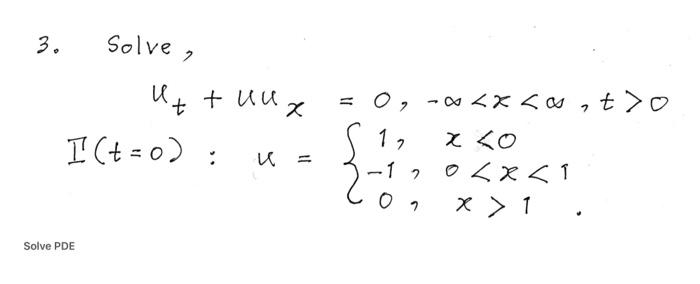 3. Solve,
u_t + uu_x = 0, -∞ < x < ∞, t > 0
I(t=0) : u = { 1, x < 0
-1, 0 < x < 1
0, x > 1 .
Solve PDE